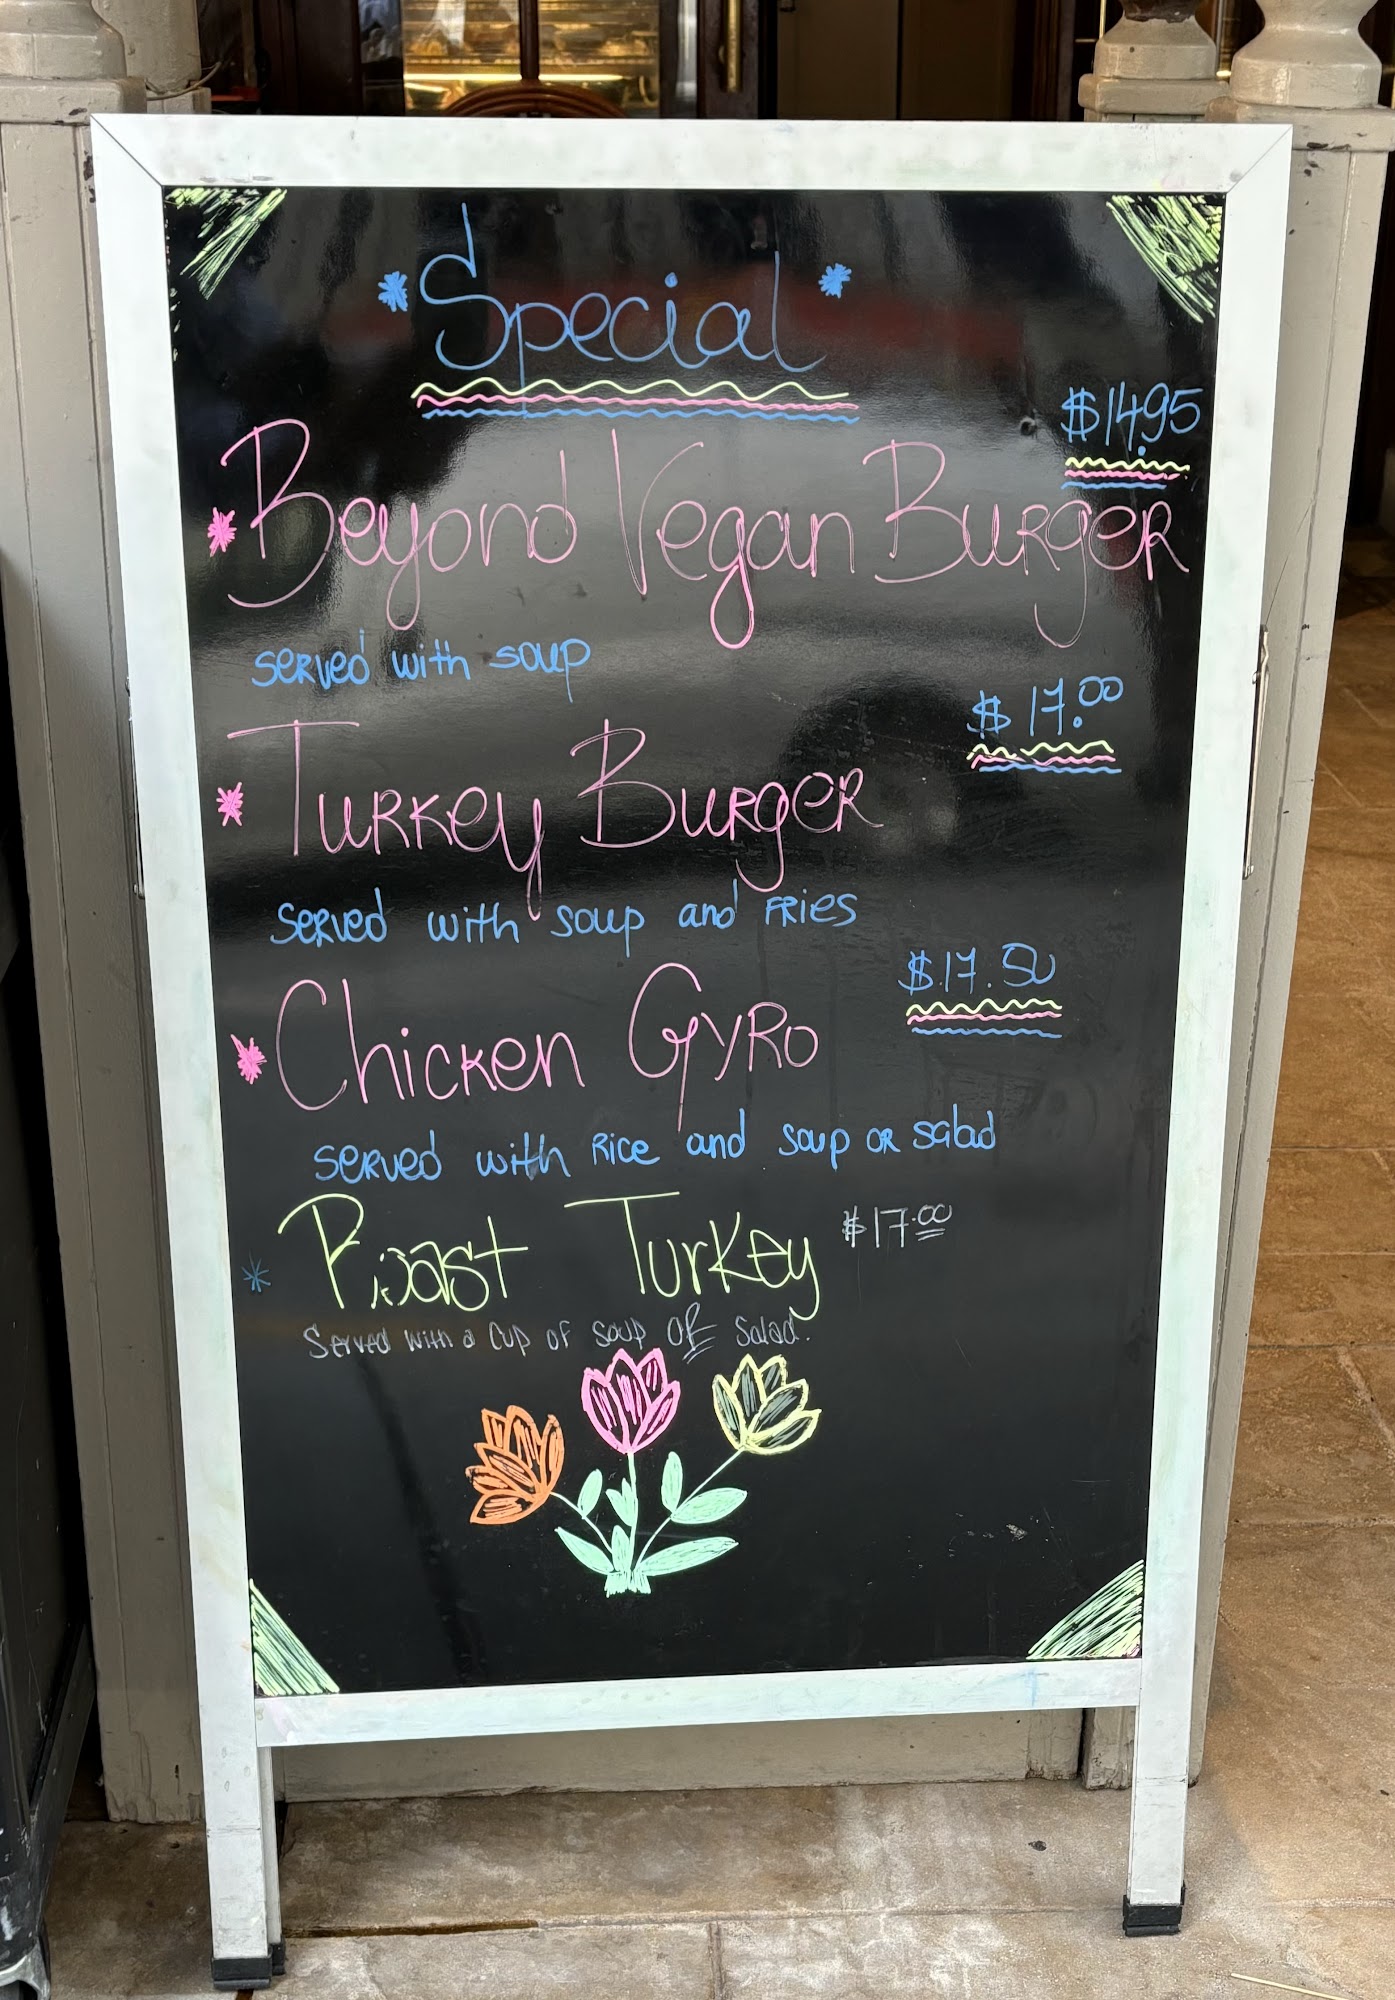 * Special *
$14.95
* Beyond Vegan Burger
served with soup
$17.00
* Turkey Burger
served with soup and fries
$17.50
* Chicken Gyro
served with rice and soup or salad
* Roast Turkey $17.00
Served with a cup of soup OR Salad.